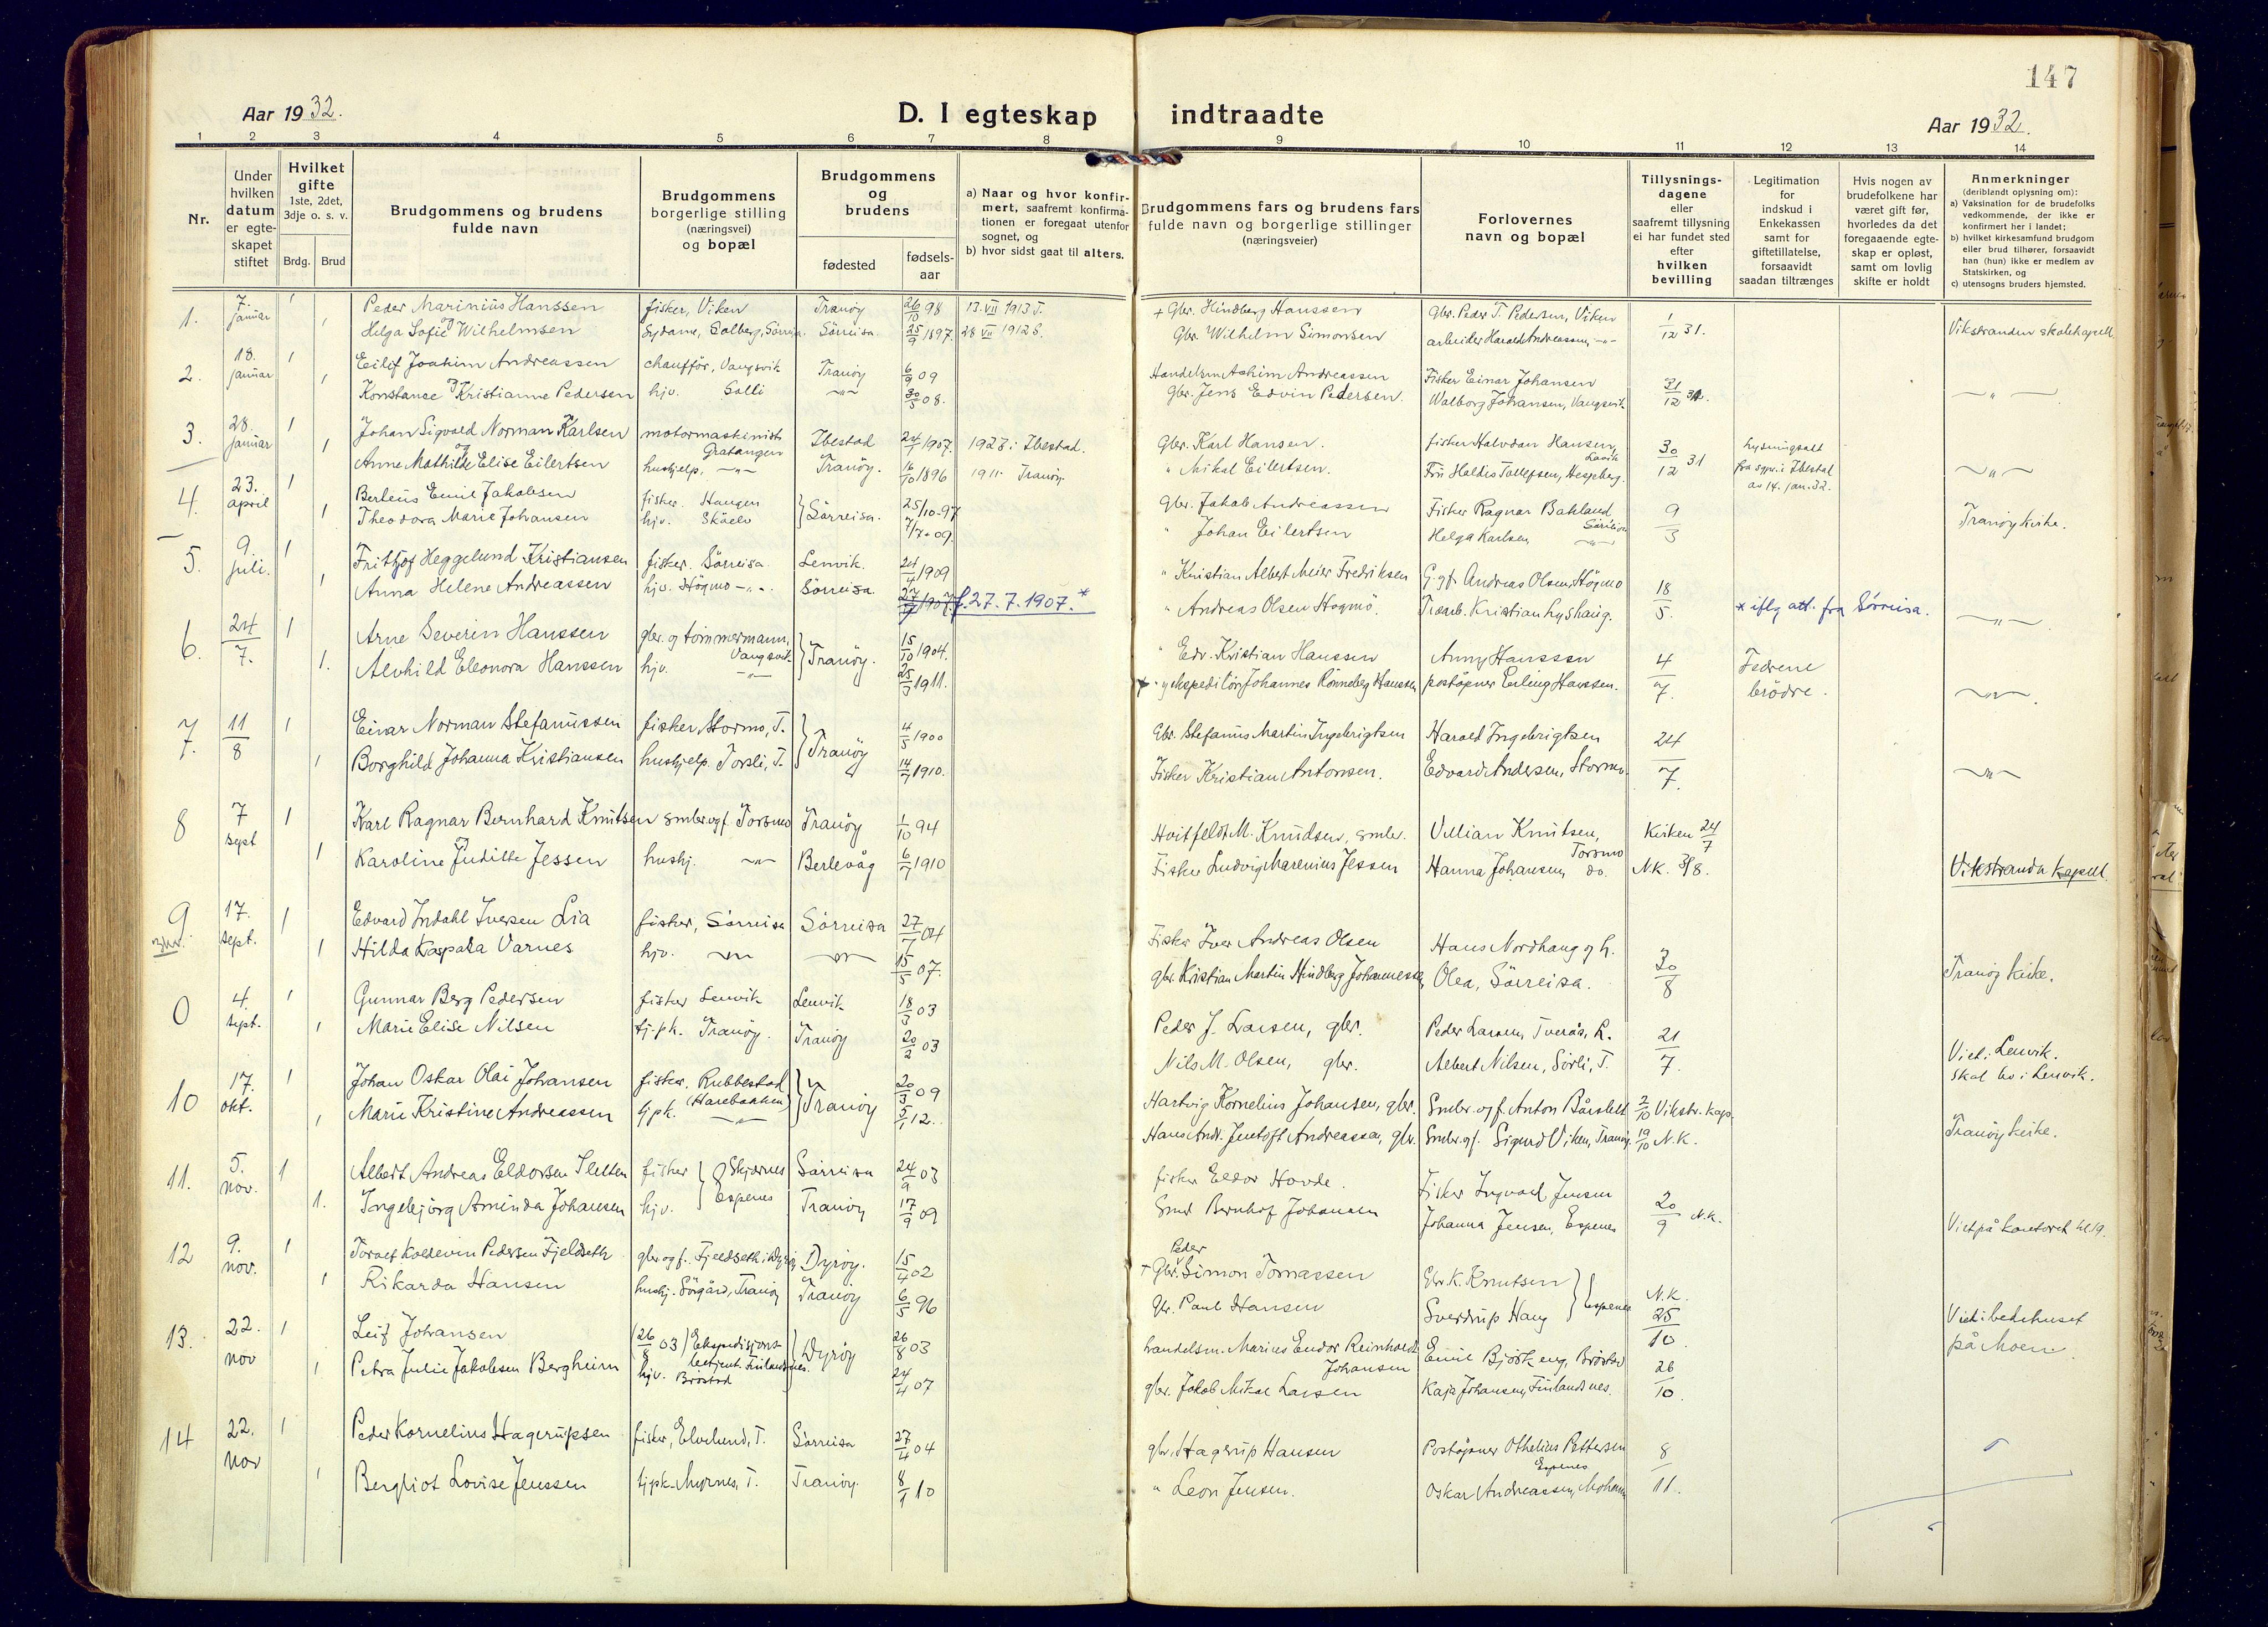 147
Aar 1932.
D. I egteskap indtraadte
Aar 1932.
1 2 3 4 5 6 7 8 9 10 11 12 13 14
Nr.
Under hvilken datum er egteskapet stiftet
Hvilket gifte 1ste, 2det, 3dje o. s. v.
Brdg. Brud
Brudgommens og brudens fulde navn
Brudgommens borgerlige stilling (næringsvei) og bopæl
Brudgommens og brudens
fødested
fødsels-aar
a) Naar og hvor konfirmert, saafremt konfirmationen er foregaat utenfor sognet, og
b) hvor sidst gaat til alters.
Brudgommens fars og brudens fars fulde navn og borgerlige stillinger (næringsveier)
Forlovernes navn og bopæl
Tillysningsdagene eller saafremt tillysning ei har fundet sted efter hvilken bevilling
Legitimation for indskud i Enkekassen samt for giftetillatelse, forsaavidt saadan tiltrænges
Hvis nogen av brudefolkene har været gift før, hvorledes da det foregaaende egteskap er opløst, samt om lovlig skifte er holdt
Anmerkninger (deriblandt oplysning om):
a) Vaksination for de brudefolks vedkommende, der ikke er konfirmert her i landet;
b) hvilket kirkesamfund brudgom eller brud tilhører, forsaavidt han (hun) ikke er medlem av Statskirken, og
c) utensogns bruders hjemsted.
1. 7. januar 1 Peder Marinius Hanssen fisker, Viken Tranöy 26/10 98 13.VII 1913 T. + Gbr. Hindberg Hanssen Gbr. Peder T. Pedersen, Viken 1/12 31. Vikstranden skolekapell
1 og Helga Sofie Wilhelmsen Sydame, Solberg, Sörreisa. Sörreisa. 25/9 1897. 28 VII 1912 S. Gbr. Wilhelm Simonsen arbeider Harald Andreassen, -"-
2. 18. januar 1 Eilif Joakim Andreassen chaufför, Vangsvik Tranöy 6/9 09 Handelsm. Achim Andreassen Fisker Einar Johansen 31/12 31. -"-
1 og Konstance Kristianne Pedersen hjv. Solli -"- 30/5 08. Gbr. Jens Edvin Pedersen. Walborg Johansen, Vangsvik
3. 28. januar 1 Johan Sigvald Norman Karlsen motormaskinist Gratangen Ibestad 24/1 1907. 1923 i Ibestad. Gbr. Karl Hansen. fisker Halvdan Hansen, Lavik 30/12 31 lysningsatt fra sgpr. i Ibestad av 14. jan. 32. -"-
1 og Anne Mathilde Elise Eilertsen hushjelp. -"- Tranöy. 16/10 1896 1911 Tranöy. " Mikal Eilertsen. Frü Haldis Tollefsen, Hesjeberg.
4. 23. april 1 Berteus Emil Jakobsen fisker. Haugen } Sörreisa. 25/10-97 Gbr. Jakob Andreassen Fisker Ragnar Bakland 9/3 Tranöy kirke.
1 Theodora Marie Johansen hjv. Skøelv 7/7-09. " Johan Eilertsen Helga Karlsen Sörreisa -"-
5. 9. juli. 1 Frithjof Heggelund Kristiansen fisker. Sörreisa. Lenvik. 24/4 1909 " Kristian Albert Meier Fredriksen G. gf. Andreas Olsen, Högmo 18/5.
1 Anna Helene Andreassen hjv. Högmo -"-. Sörreisa. 27/9 1907 f. 27. 7. 1907. * " Andreas Olsen Högmö. Træarb. Kristian Lyshaug. * iflg att. fra Sörreisa. -"-
6. 24/7. 1 Arne Severin Hanssen gbr. og tömmermann, Vangsvik } Tranöy. 15/10 1904. " Edv. Kristian Hanssen Anny Hanssen 4/7. Fedrene brödre.
1. Alvhild Eleonora Hanssen hjv. -"- 25/3 1911. + " og ekspeditör Johannes Rönneberg Hanssen poståpner Erling Hanssen. -"-
7. 11/8 1 Einar Norman Stefanussen fisker Stormo, T. } Tranöy 4/5 1900 Gbr. Stefanus Martin Ingebrigtsen Harald Ingebrigtsen 24/7.
1 Borghild Johanna Kristiansen hushjelp. Torsli, T. 14/7 1910. Fisker Kristian Antonsen. Edvard Andersen, Stormo. -"-
8 7 sept 1 Karl Ragnar Bernhard Knutsen smbr. og f. Torsmo Tranöy 1/10 94 Hvitfeldt M. Knudsen, smbr. Villian Knutsen, Torsmo Kirken 24/7
1 og Karoline Juditte Jessen hushj. -"- Berlevåg 6/7 1910 Fisker Ludvig Marenius Jessen Hanna Johansen, do. N.K. 3/8. Vikstranda kapell.
9 17. sept. 1 Edvard Indahl Iversen Lia fisker, Sörreisa Sörreisa 27/7 04 Fisker Iver Andreas Olsen Hans Nordhaug og h.
1 Hilda Kaspara Varnes hjv. -"- -"- 15/5 07. gbr. Kristian Martin Hindberg Johannessen Olea, Sörreisa. 30/8 Tranöy kirke.
0 4. sept. 1 Gunnar Berg Pedersen fisker Lenvik Lenvik 18/3 03 Peder J. Larsen, gbr. Peder Larsen, Tverås, R. 21/7. Viet i Lenvik. Skal bo i Lenvik.
1 Marie Elise Nilsen tj.pk. Tranöy. Tranöy 20/2 03 Nils M. Olsen, gbr. Albert Nilsen, Sörli, T.
10 17. okt. 1 Johan Oskar Olai Johansen fisker, Rubbestad (Harebakken) } Tranöy 20/3 09 Hartvig Kornelius Johansen, gbr. Smbr. og f. Anton Bårslett 2/10 Vikstr. kap.
1 Marie Kristine Andreassen tjpk. -"- 5/1 12. Hans Andr. Jentoft Andreassen, gbr. Smbr. gf. Sigurd Viken, Tranöy. 19/10 N.K. Tranöy kirke.
11. 5. nov. 1 Albert Andreas Eldorsen Sletten fisker } Skjærnes Sörreisa 24/9 03 fisker Eldor Hovde. Fisker Ingvald Jensen 20/9 N.K.
1. Ingebjörg Aminda Johansen hjv. Espenes Tranöy 17/9 09 Smbr Bernhof Johansen Johanna Jensen, Espenes Viet på kontoret kl 19.
12 9. nov. 1 Toralf Koldevin Pedersen Fjeldseth gbr og f. Fjeldseth i Dyröy Dyröy. 15/4 02 + Gbr. Peder Simon Tomassen Gbr. K. Knutsen } Espenes N.K. 25/10.
1 Rikarda Hansen hushj. Sörgård, Tranöy Tranöy 6/5 96 Gbr. Paul Hansen Sverdrup Haug
13. 22. nov 1 Leif Johansen (26/8 03) Ekspedisjonsbetjent Finlandsnes. } Dyröy 26/8 03 handelsm. Marius Endor Reinholdt Johansen Emil Björkeng, Bröstad 26/10. Viet i bedehuset på Moen.
1 Petra Julie Jakobsen Bergheim hjv. Bröstad 24/4 07 gbr. Jakob Mikal Larsen Kaja Johansen, Finlandsnes.
14 22. nov 1 Peder Kornelius Hagerupsen fisker, Elvelund, T. Sörreisa 27/4 04 gbr. Hagerup Hansen Poståpner Othelius Pettersen Espenes 8/11.
1 Bergliot Lovise Jenssen tjpk. Myrnes, T. Tranöy. 8/1 10 " Leon Jensen. Oskar Andreassen, Moheim